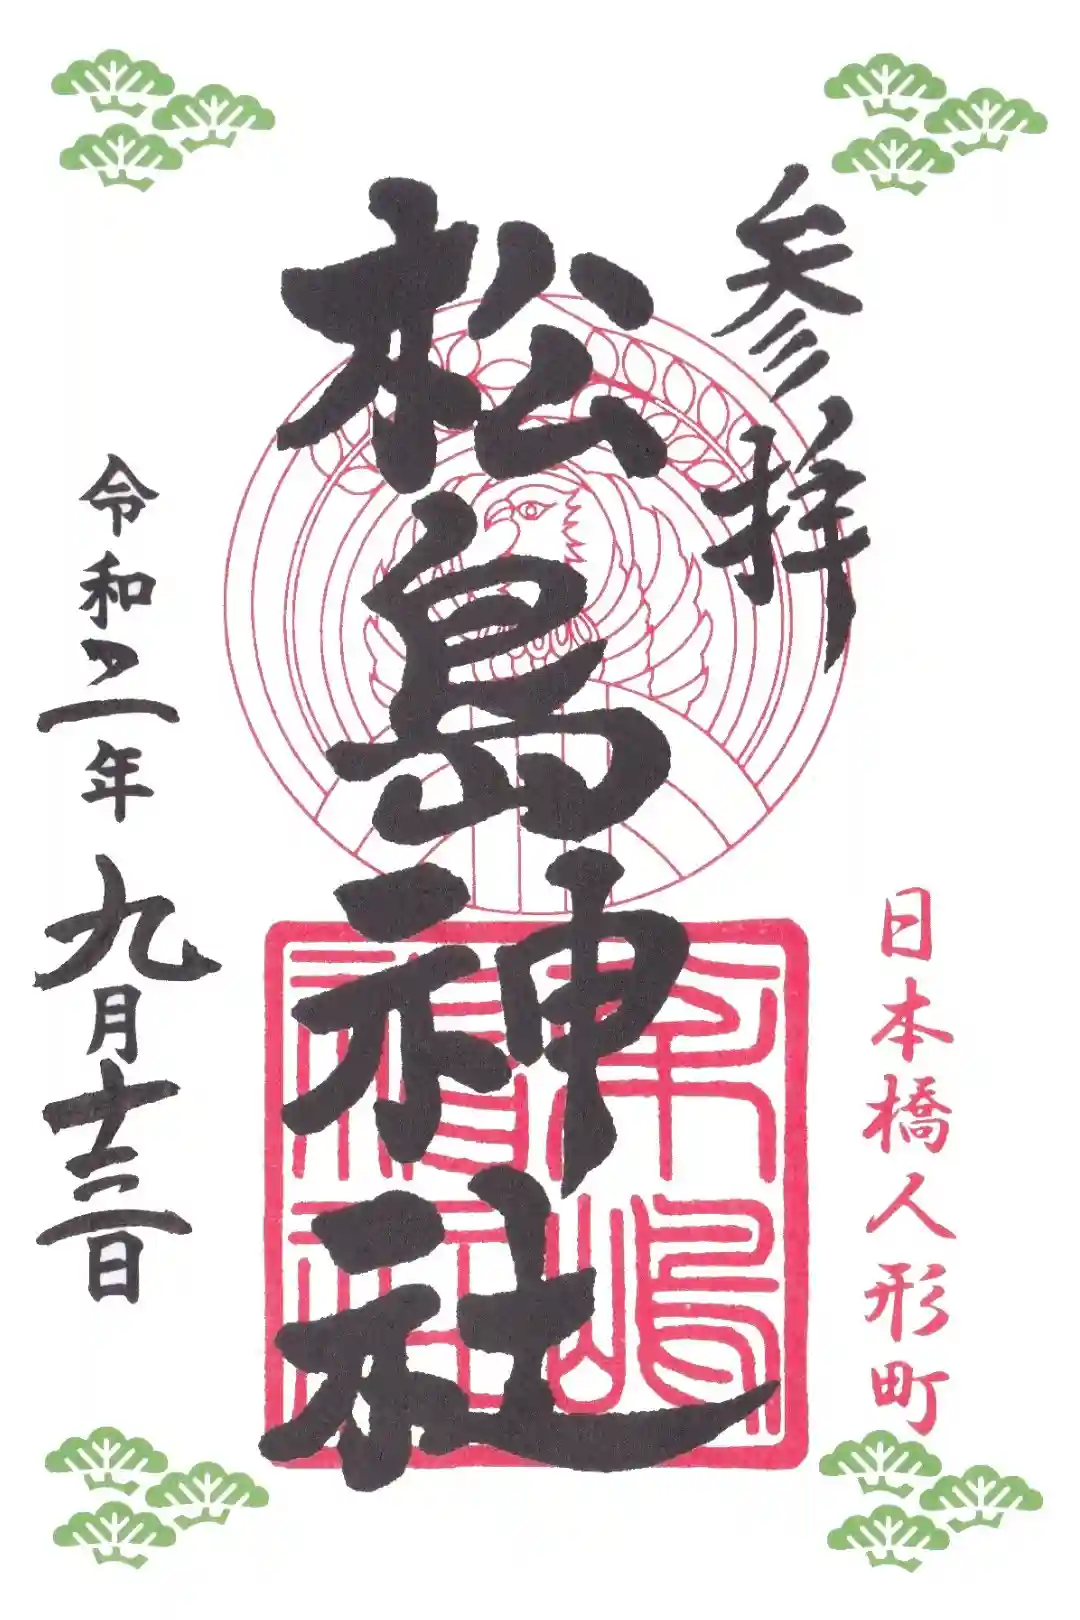 参拝
日本橋人形町
松島神社
令和二年九月十三日